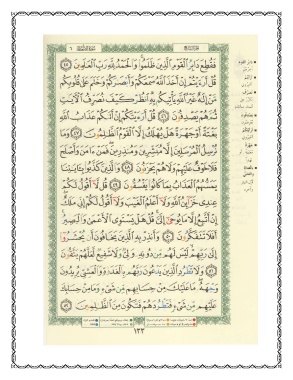 فَقُطِعَ دَابِرُ ٱلْقَوْمِ ٱلَّذِينَ ظَلَمُوا۟ وَٱلْحَمْدُ لِلَّهِ رَبِّ ٱلْعَـٰلَمِينَ ٤٥
قُلْ أَرَءَيْتُمْ إِنْ أَخَذَ ٱللَّهُ سَمْعَكُمْ وَأَبْصَـٰرَكُمْ وَخَتَمَ عَلَىٰ قُلُوبِكُم
مَّنْ إِلَـٰهٌ غَيْرُ ٱللَّهِ يَأْتِيكُم بِهِ ٱنظُرْ كَيْفَ نُصَرِّفُ ٱلْـَٔايَـٰتِ
ثُمَّ هُمْ يَصْدِفُونَ ٤٦ قُلْ أَرَءَيْتَكُمْ إِنْ أَتَىٰكُمْ عَذَابُ ٱللَّهِ
بَغْتَةً أَوْ جَهْرَةً هَلْ يُهْلَكُ إِلَّا ٱلْقَوْمُ ٱلظَّـٰلِمُونَ ٤٧ وَمَا
نُرْسِلُ ٱلْمُرْسَلِينَ إِلَّا مُبَشِّرِينَ وَمُنذِرِينَ فَمَنْ ءَامَنَ وَأَصْلَحَ
فَلَا خَوْفٌ عَلَيْهِمْ وَلَا هُمْ يَحْزَنُونَ ٤٨ وَٱلَّذِينَ كَذَّبُوا۟ بِـَٔايَـٰتِنَا
يَمَسُّهُمُ ٱلْعَذَابُ بِمَا كَانُوا۟ يَفْسُقُونَ ٤٩ قُل لَّآ أَقُولُ لَكُمْ
عِندِى خَزَآئِنُ ٱللَّهِ وَلَآ أَعْلَمُ ٱلْغَيْبَ وَلَآ أَقُولُ لَكُمْ إِنِّى مَلَكٌ
إِنْ أَتَّبِعُ إِلَّا مَا يُوحَىٰٓ إِلَىَّ قُلْ هَلْ يَسْتَوِى ٱلْأَعْمَىٰ وَٱلْبَصِيرُ
أَفَلَا تَتَفَكَّرُونَ ٥٠ وَأَنذِرْ بِهِ ٱلَّذِينَ يَخَافُونَ أَن يُحْشَرُوٓا۟
إِلَىٰ رَبِّهِمْ لَيْسَ لَهُم مِّن دُونِهِۦ وَلِىٌّ وَلَا شَفِيعٌ لَّعَلَّهُمْ يَتَّقُونَ
٥١ وَلَا تَطْرُدِ ٱلَّذِينَ يَدْعُونَ رَبَّهُم بِٱلْغَدَوٰةِ وَٱلْعَشِىِّ يُرِيدُونَ
وَجْهَهُۥ مَا عَلَيْكَ مِنْ حِسَابِهِم مِّن شَىْءٍ وَمَا مِنْ حِسَابِكَ
عَلَيْهِم مِّن شَىْءٍ فَتَطْرُدَهُمْ فَتَكُونَ مِنَ ٱلظَّـٰلِمِينَ ٥٢
١٣٣